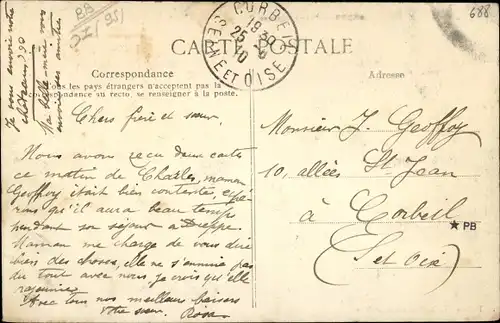 688
BB
3Z/95
CORBEIL
19 30
25 - 6
10
SEINE ET OISE
CARTE POSTALE
Correspondance
Adresse
Tous les pays étrangers n'acceptent pas la
correspondance au recto, se renseigner à la poste.
Je vous envoie notre
château
Ma belle-mère vous
envoie ses amitiés
Chers frère et sœur.
Nous avons reçu deux cartes
ce matin de Charles, maman
Geoffroy était bien contente, espé-
rons qu'il aura beau temps
pendant son séjour à Dieppe.
Maman me charge de vous dire
bien des choses, elle ne s'ennuie pas
du tout avec nous, je crois qu'elle
rajeunie.
Avec tous nos meilleurs baisers
Votre sœur. Rosa
Monsieur J. Geoffroy
10, allées St Jean
à Corbeil
(S et Oise)
★PB